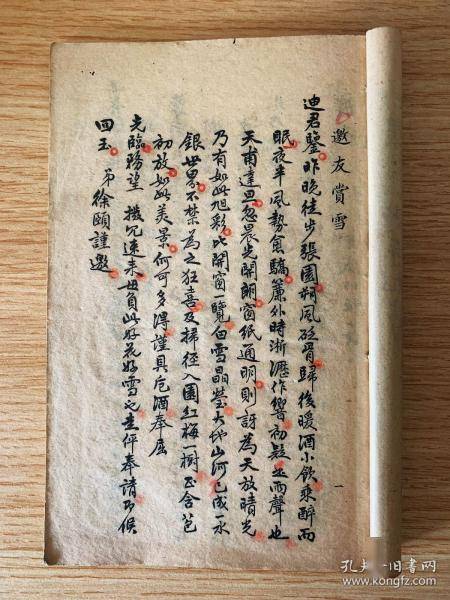 邀友賞雪
迪君鑒昨晚徒步張園朔風砭骨歸後暖酒小飲乘醉而
眠夜半風勢愈驕簾外時淅瀝作響初疑其雨聲也
天甫達旦忽晨光開朗窗紙通明則訝為天放晴光
乃有如此旭彩比開窗一覽白雪晶瑩大地山河已成一水
銀世界不禁為之狂喜及掃徑入園紅梅一樹正含苞
初放如此美景何可多得謹具卮酒奉屈
光臨務望撥冗速來毋負此好花好雪也走伻奉請即候
回玉 弟徐頤謹邀
一
孔夫子旧书网
www.kongfz.com